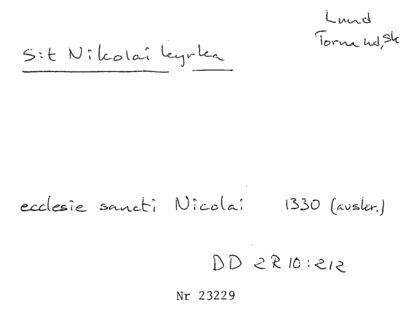 Lund
Torna hd, Sk
S:t Nikolai kyrka
ecclesie sancti Nicolai 1330 (avskr.)
DD 2R 10:212
Nr 23229